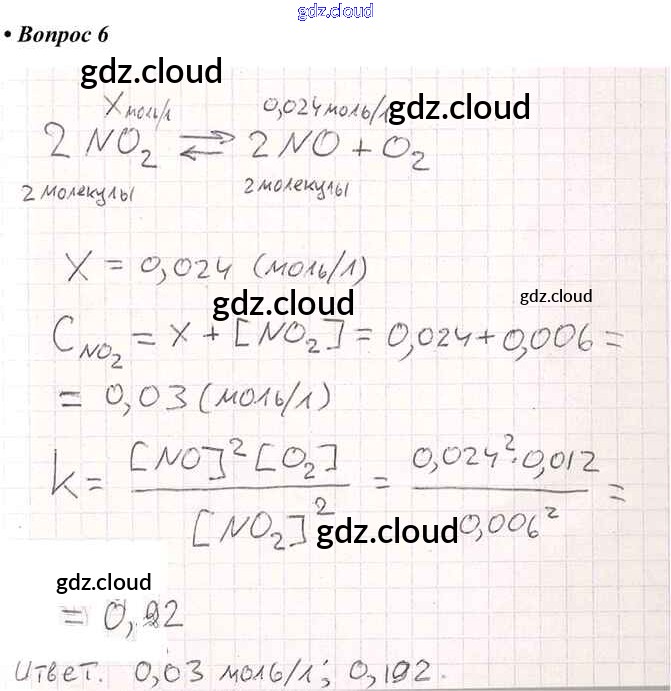 gdz.cloud
• Вопрос 6
gdz.cloud
X моль/л 0,024 моль/л gdz.cloud
2 NO₂ ⇌ 2 NO + O₂
2 молекулы 2 молекулы
X = 0,024 (моль/л)
gdz.cloud gdz.cloud
C_NO₂ = X + [NO₂] = 0,024 + 0,006 =
= 0,03 (моль/л)
k = [NO]² [O₂] / [NO₂]² = 0,024² · 0,012 / 0,006² =
gdz.cloud
gdz.cloud
Ответ. 0,03 моль/л; 0,192.